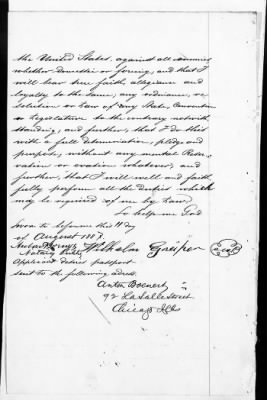 the United States, against all enemies
whether domestic or foreing, and that I
will bear true faith, allegiance and
loyalty to the same, any ordinance, re-
solution or Law of any State, Convention
or Legislature to the contrary notwith
standing; and further, that I do this
with a full determination, pledge and
purpose, without any mental Reser-
vation or evasion whatever; and
further, that I will well and faith
fully perform all the duties which
may be required of me by Law.
So help me God
Sworn to before me this 11 day
of August 1887.
Wilhelm
Notary Public
Applicant desires passport
sent to the following adress:
Anton Boenert
92 LaSalle Street
Chicago Ills